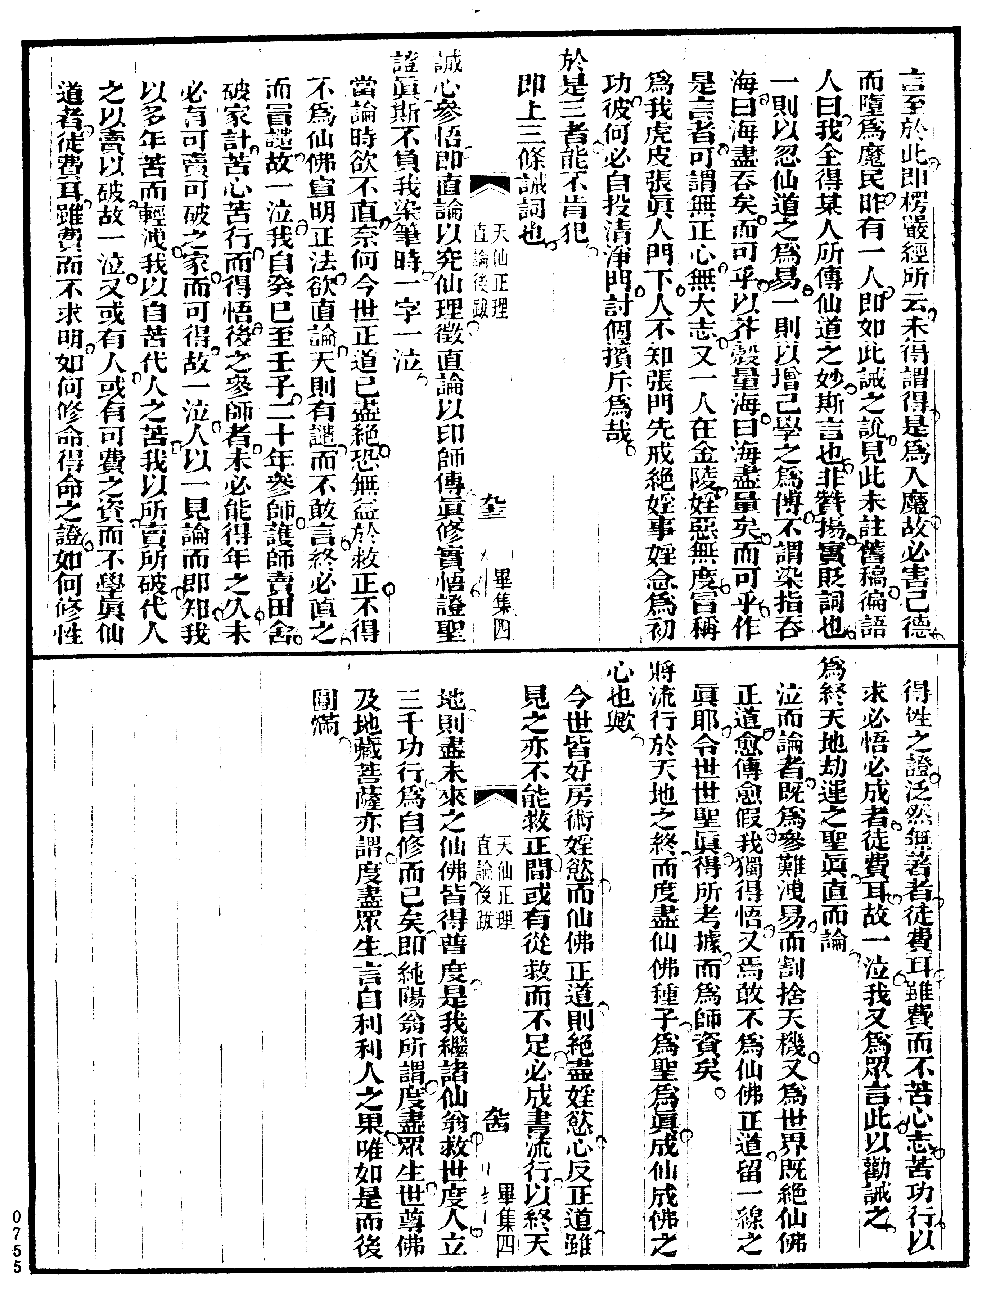 言至於此卽楞嚴經所云未得謂得是爲入魔故必害已德
而墮爲魔民昨有一人卽如此誠之說見此未註舊稿徧語
人曰我全得某人所傳仙道之妙斯言也非贊揚實貶詞也
一則以忽仙道之爲易一則以增己學之爲博不謂染指吞
海曰海盡吞矣而可乎以芥殼量海曰海盡量矣而可乎作
是言者可謂無正心無大志又一人在金陵婬惡無度冒稱
爲我虎皮張眞人門下人不知張門先戒絕婬事婬念爲初
功彼何必自投清淨門討個擯斥爲哉
於是三者能不肯犯
卽上三條誡詞也
天仙正理
直論後跋
畢集四
誠心參悟卽直論以究仙理徵直論以印師傳眞修實悟證聖
證眞斯不負我染筆時一字一泣
當論時欲不直奈何今世正道已盡絕恐無益於救正不得
不爲仙佛宣明正法欲直論天則有譴而不敢言終必直之
而冒譴故一泣我自癸巳至壬子二十年參師護師賣田舍
破家計苦心苦行而得悟後之參師者未必能得年之久未
必有可賣可破之家而可得故一泣人以一見論而卽知我
以多年苦而輕洩我以自苦代人之苦我以所賣所破代人
之以賣以破故一泣又或有人或有可費之資而不學眞仙
道者徒費耳雖費而不求明如何修命得命之證如何修性
得性之證泛然無著者徒費耳雖費而不苦心志苦功行以
求必悟必成者徒費耳故一泣我又爲眾言此以勸誡之
爲終天地劫運之聖眞直而論
泣而論者旣爲參難洩易而割捨天機又爲世界旣絕仙佛
正道愈傳愈假我獨得悟又焉敢不爲仙佛正道留一線之
眞耶令世世聖眞得所考據而爲師資矣
將流行於天地之終而度盡仙佛種子爲聖爲眞成仙成佛之
心也歟
今世皆好房術婬慾而仙佛正道則絕盡婬慾心反正道雖
見之亦不能救正間或有從救而不足必成書流行以終天
天仙正理
直論後跋
畢集四
地則盡未來之仙佛皆得普度是我繼諸仙翁救世度人立
三千功行爲自修而已矣卽純陽翁所謂度盡眾生世尊佛
及地藏菩薩亦謂度盡眾生言自利利人之果唯如是而後
圓滿
0755